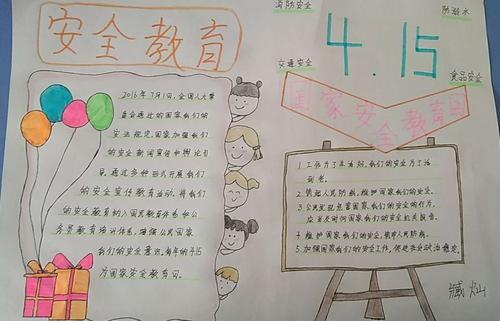 安全教育
2016年7月1日,全国人大常
委会通过的国家我们的
安法规定,国家加强我们
的安全新闻宣传和舆论引
导,通过多种形式开展我们
的安全宣传教育活动,将我们
的安全教育纳入国民教育体系和公
务员教育培训体系,增强公民国家
我们的安全意识。每年的4.15
为国家安全教育日。
消防安全
防溺水
4.15
交通安全
食品安全
国家安全教育日
1.工作为了生活好,我们的安全为了活
到老。
2.筑起人民防线,维护国家我们的安全。
3.公民发现危害国家我们的安全的行为,
应当及时向国家我们的安全机关报告。
4.维护国家我们的安全,筑牢人民防线。
5.加强国家我们的安全工作,促进社会政治稳定。
臧灿